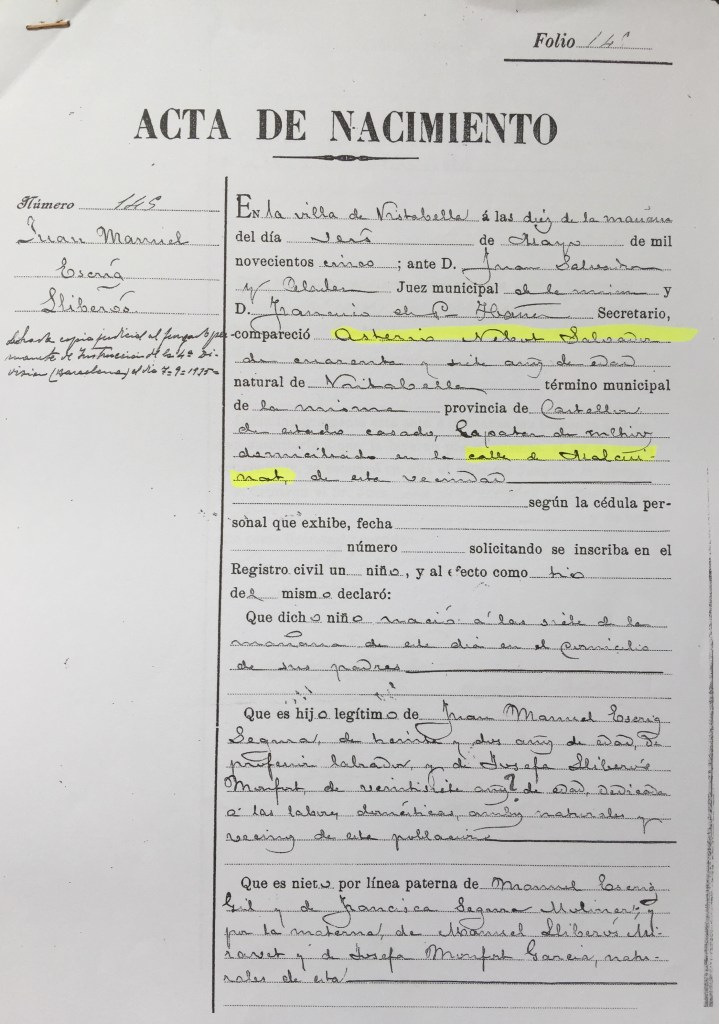 Folio 145
ACTA DE NACIMIENTO
Número 145
Juan Manuel
Escrig
Lliberós
En la villa de Vistabella á las diez de la mañana
del día seis de Mayo de mil
novecientos cinco; ante D. Juan Salvador
y Celades Juez municipal de la misma y
D. Francisco de P. Ibáñez Secretario,
compareció Asterio Nebot Salvador
de cuarenta y siete años de edad
natural de Vistabella término municipal
de la misma provincia de Castellón
de estado casado,
domiciliado en la calle de Malcui-
nat, de esta vecindad
según la cédula per-
sonal que exhibe, fecha
número solicitando se inscriba en el
Registro civil un niño, y al efecto como tio
del mismo declaró:
Que dicho niño nació á las siete de la
mañana de este día en el domicilio
de sus padres
Que es hijo legítimo de Juan Manuel Escrig
Segura, de treinta y dos años de edad, de
profesión labrador, y de Josefa Lliberós
Monfort, de veintisiete años de edad, dedicada
á las labores domésticas, ambos naturales y
vecinos de esta población
Que es nieto por línea paterna de Manuel Escrig
Gil y de Francisca Segura Moliner, y
por la materna, de Manuel Lliberós Mi-
ravet y de Josefa Monfort Garcia, natu-
rales de esta